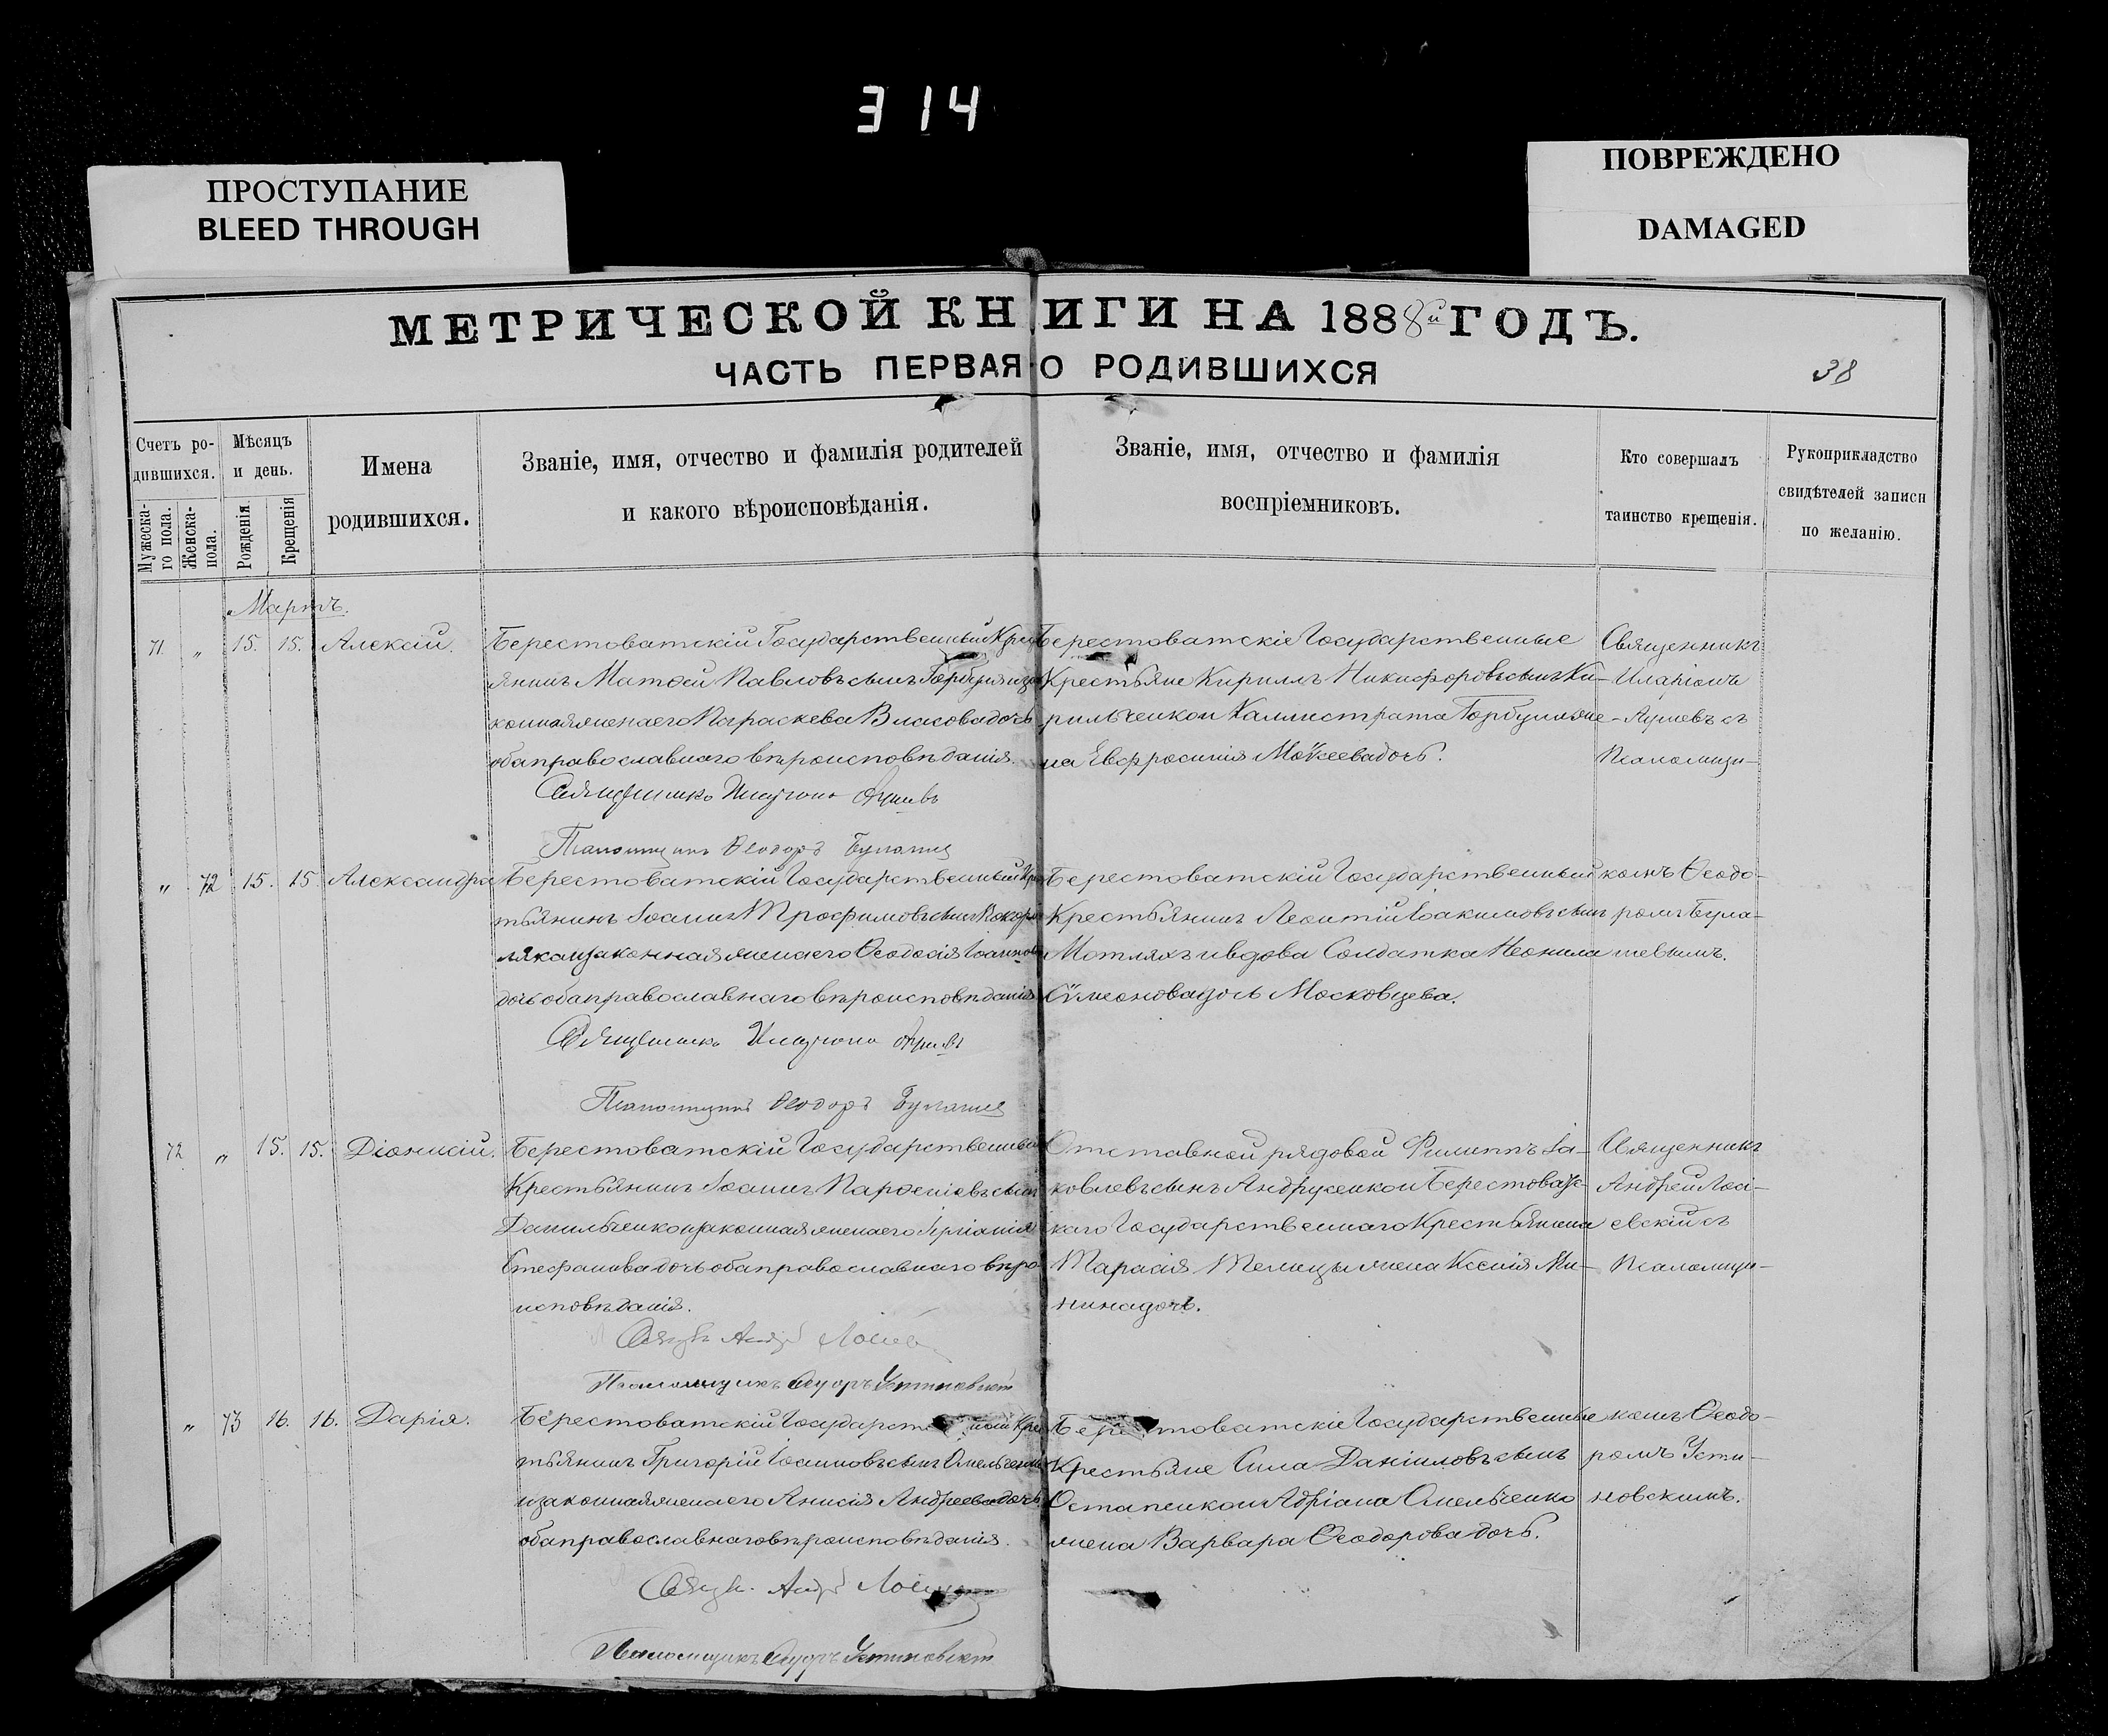 314
ПРОСТУПАНИЕ
BLEED THROUGH
ПОВРЕЖДЕНО
DAMAGED
МЕТРИЧЕСКОЙ КНИГИ НА 1888й ГОДЪ.
ЧАСТЬ ПЕРВАЯ О РОДИВШИХСЯ
38
Счетъ ро-
дившихся.
Мужеска-
го пола.
Женска-
пола.
Мѣсяцъ
и день.
Рожденія
Крещенія
Имена
родившихся.
Званіе, имя, отчество и фамилія родителей
и какого вѣроисповѣданія.
Званіе, имя, отчество и фамилія
воспріемниковъ.
Кто совершалъ
таинство крещенія.
Рукоприкладство
свидѣтелей записи
по желанію.
Мартъ.
71. " 15. 15. Алексій.
Берестоватскій Государственный Крес
янинъ Матѳей Павловъ сынъ Горбуля и за
конная жена его Параскева Власова дочь
оба православнаго вѣроисповѣданія.
Священникъ Иларіонъ
Псаломщикъ Ѳеодоръ Булашев
Берестоватскіе Государственные
Крестьяне Кириллъ Никифоровъ сынъ Ки-
рильченко и Калистрата Горбули же-
на Евфросинія Моѵсеева дочь.
Священникъ
Иларіонъ
съ
Псаломщи-
" 72 15. 15. Александра
Берестоватскій Государственный Крес
тьянинъ Іоаннъ Трофимовъ сынъ
ляка и законная жена его Ѳеодосія Іоаннова
дочь оба православнаго вѣроисповѣданія
Священникъ Иларіонъ
Псаломщикъ Ѳеодоръ Булашев
Берестоватскій Государственный
Крестьянинъ Леонтій Іоакимовъ сынъ
Мотляхъ и вдова Солдатка Неонила
Сѵмеонова дочь Московцева.
комъ Ѳеодо-
ромъ Була-
шевымъ.
72 " 15. 15. Діонисій.
Берестоватскій Государственный
Крестьянинъ Іоаннъ Парѳеніевъ сынъ
Данильченко и законная жена его
Стефанова дочь оба православнаго вѣро
исповѣданія.
Свящ. Андрей
Псаломщикъ Ѳеодоръ Устиновскій
Отставной рядовой Филиппъ Іа-
ковлевъ сынъ Андрусенко и Берестоватс-
каго Государственнаго Крестьянина
Тарасія Телицы жена Ксенія Ми-
нина дочь.
Священникъ
Андрей Лосі-
евскій съ
Псаломщи-
" 73 16. 16. Дарія.
Берестоватскій Государственный Крес
тьянинъ Григорій Іоанновъ сынъ Омельченко
и законная жена его Анисія Андреева дочь
оба православнаго вѣроисповѣданія.
Свящ. Андрей
Псаломщикъ Ѳеодоръ Устиновскій
Берестоватскіе Государственные
Крестьяне Сила Даніиловъ сынъ
Остапенко и Адріана Омельченко
жена Варвара Ѳеодорова дочь.
комъ Ѳеодо-
ромъ Усти-
новскимъ.